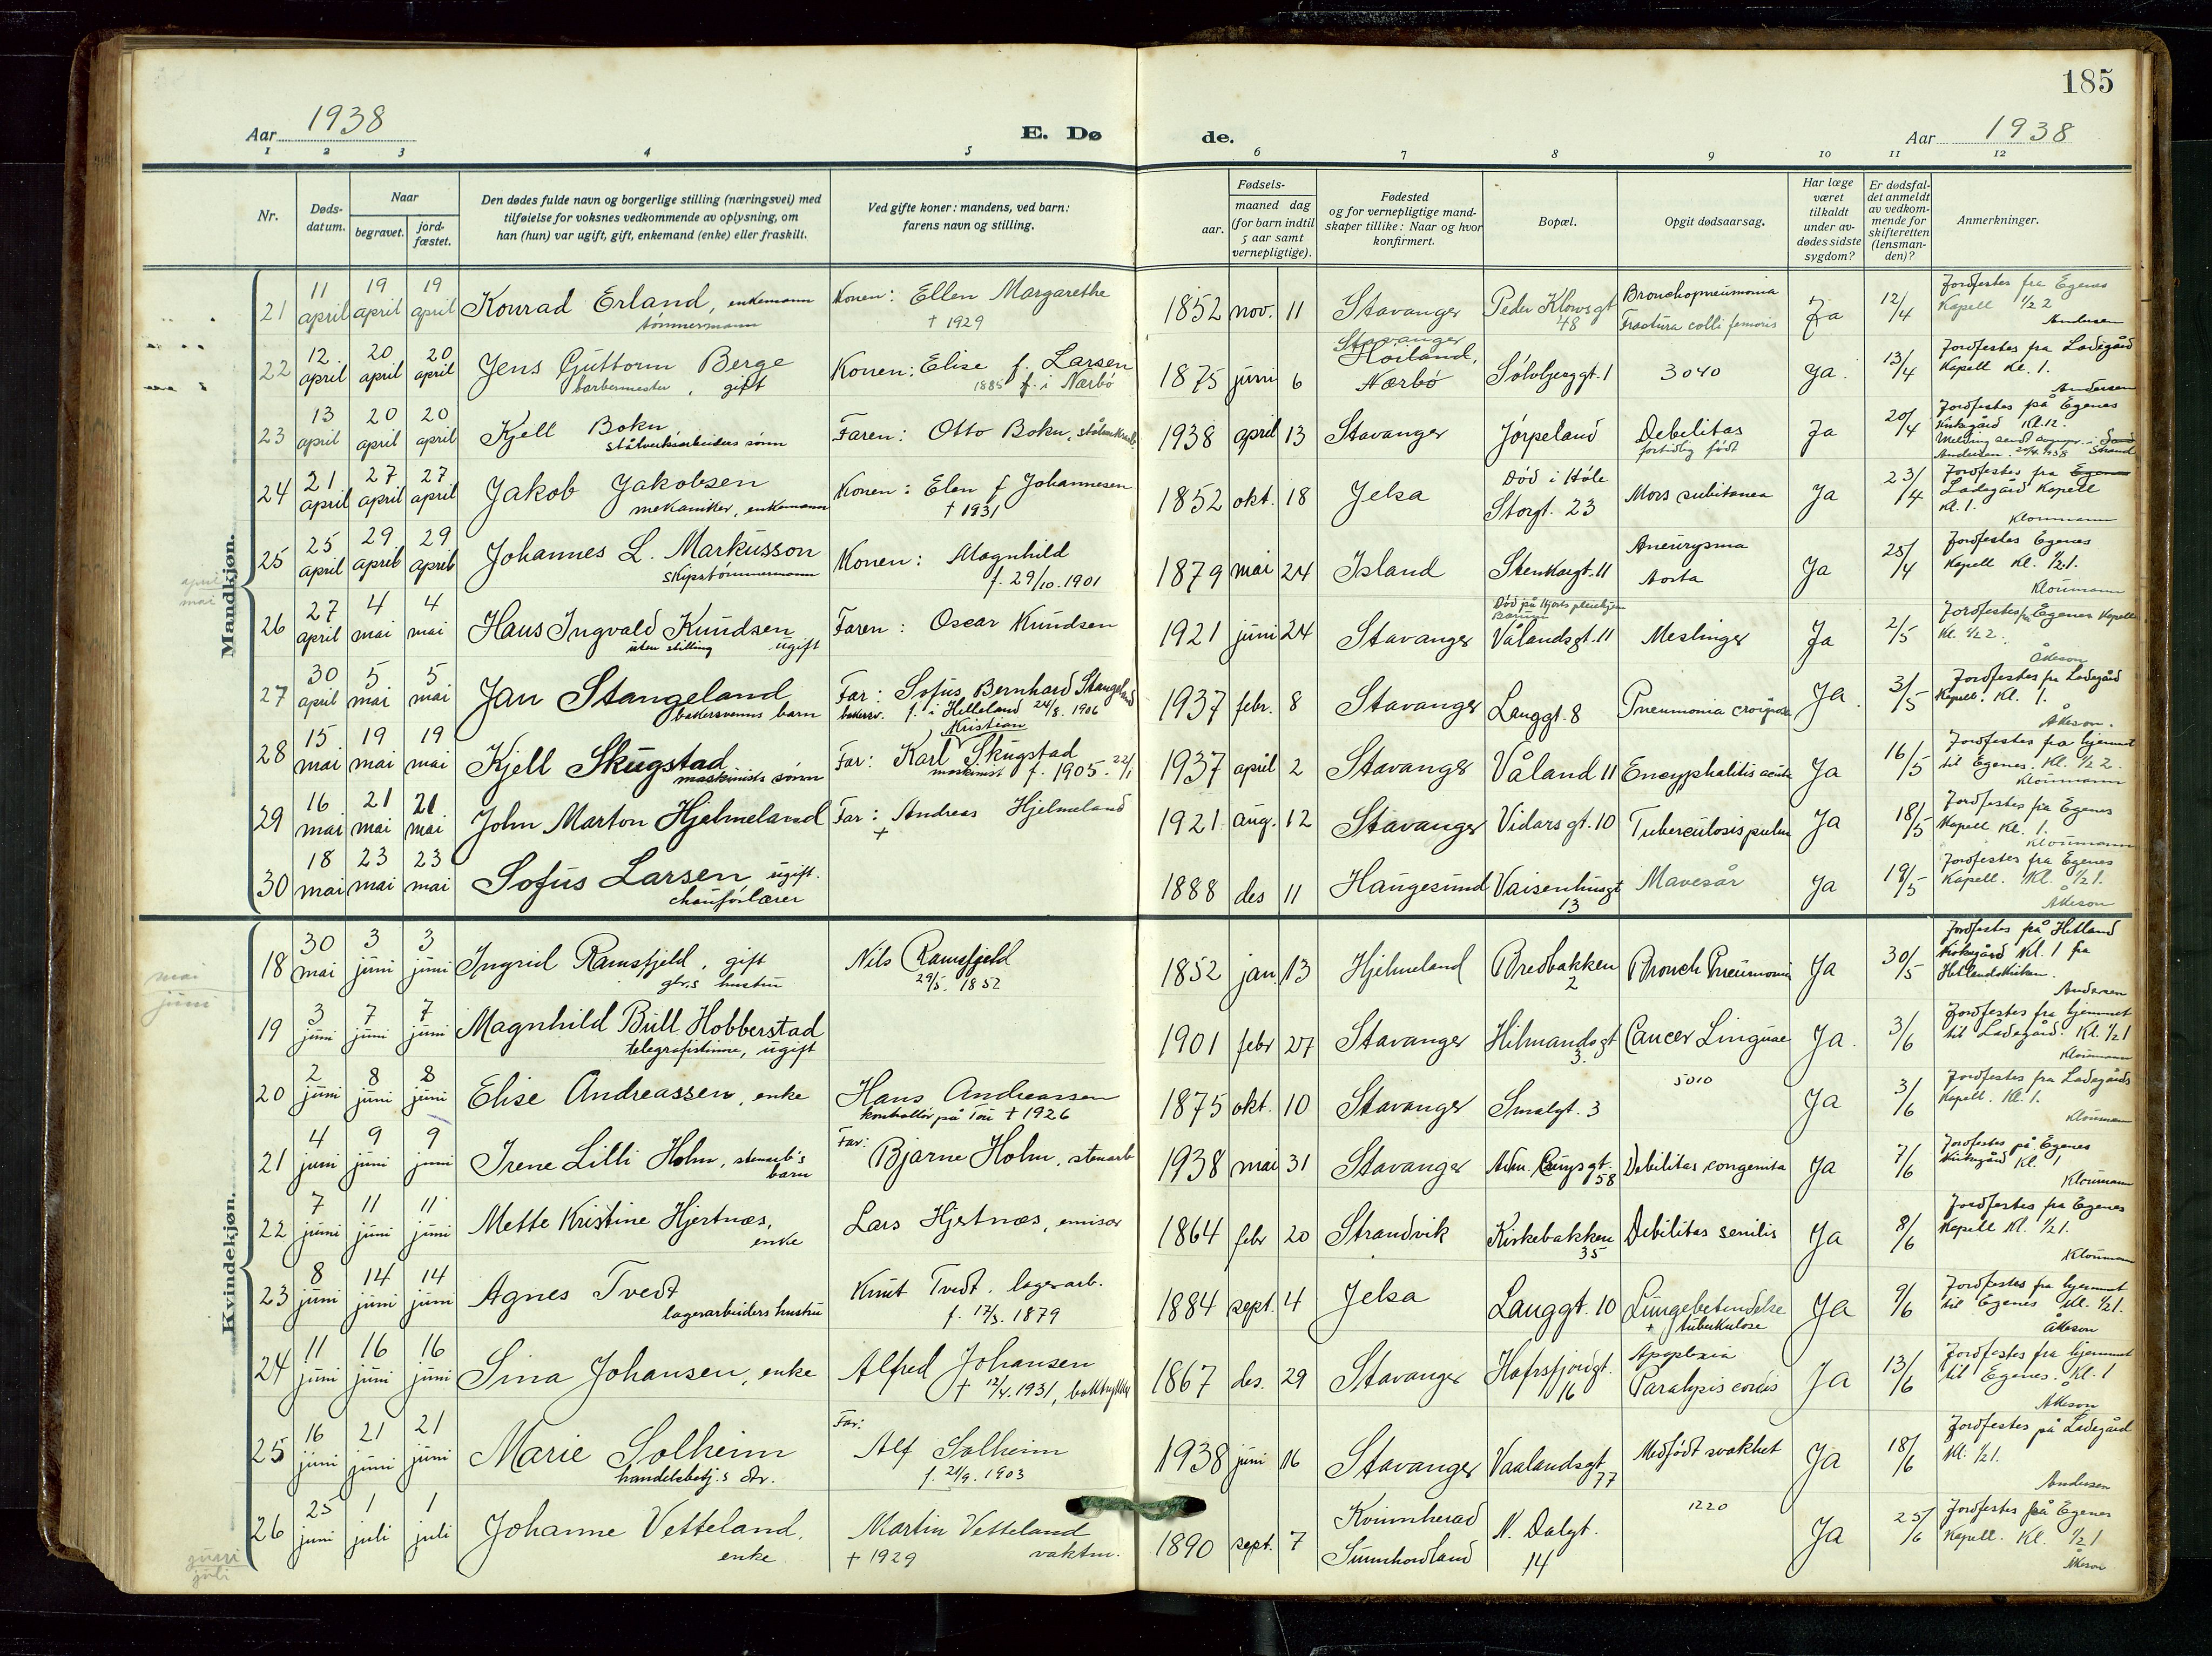 185
Aar 1938
E. Døde.
Aar 1938
1 2 3 4 5 6 7 8 9 10 11 12
Nr.
Døds-
datum.
Naar
begravet.
jord-
fæstet.
Den dødes fulde navn og borgerlige stilling (næringsvei) med
tilføielse for voksnes vedkommende av oplysning, om
han (hun) var ugift, gift, enkemand (enke) eller fraskilt.
Ved gifte koner: mandens, ved barn:
farens navn og stilling.
Fødsels-
aar.
maaned dag
(for barn indtil
5 aar samt
vernepligtige).
Fødested
og for vernepligtige mand-
skaper tillike: Naar og hvor
konfirmert.
Bopæl.
Opgit dødsaarsag.
Har læge
været
tilkaldt
under av-
dødes sidste
sygdom?
Er dødsfal-
det anmeldt
av vedkom-
mende for
skifteretten
(lensman-
den)?
Anmerkninger.
Mandkjøn.
21 11 april 19 april 19 april Konrad Erland, enkemann
tømmermann
Konen: Ellen Margarethe
† 1929
1852 nov. 11 Stavanger Peder Klowsgt 48 Bronchopneumonia
Fractura colli femoris Ja 12/4 Jordfestes fra Egenes
Kapell 1/2 2
Andersen
22 12. april 20 april 20 april Jens Guttorm Berge
barbermester, gift
Konen: Elise f. Larsen
1885 f. i Nærbø
1875 juni 6 Stavanger
Høiland,
Nærbø Sølvbjerggt. 1 3040 Ja. 13/4 Jordfestes fra Ladegård
Kapell Kl. 1.
Andersen
23 13 april 20 april 20 april Kjell Bokn
stålverksarbeiders sønn
Faren: Otto Bokn,
1938 april 13 Stavanger Jørpeland Debilitas
fortidlig født Ja 20/4 Jordfestes på Egenes
Kirkegård Kl. 12.
Melding sendt Strand
Andersen. 20/4. 1938
24 21 april 27 april 27 april Jakob Jakobsen
mekaniker, enkemann
Konen: Elen f Johannesen
† 1931
1852 okt. 18 Jelsa Død i Høle
Storgt. 23 Mors subitanea Ja 23/4 Jordfestes fra Egenes
Ladegård Kapell
Kl. 1.
Kloumann
25 25 april 29 april 29 april Johannes L. Markusson
skipstømmermann
Konen: Magnhild
f. 29/10. 1901
1879 mai 24 Island Stenkargt. 11 Aneurysma
Aorta Ja 25/4 Jordfestes Egenes
Kapell Kl. 1/2 1.
Kloumann
april
mai
26 27 april 4 mai 4 mai Hans Ingvald Knudsen
uten stilling ugift
Faren: Oscar Knudsen
1921 juni 24 Stavanger Død på Hjorts pleiehjem
Vålandsgt. 11 Meslinger Ja 2/5 Jordfestes fra Egenes Kapell
Kl. 1/2 2.
Åkeson
27 30 april 5 mai 5 mai Jan Stangeland
bakersvenns barn
Far: Sofus Bernhard Stangeland
bakersv. f. i Helleland 24/8. 1906
1937 febr. 8 Stavanger Langgt. 8 Pneumonia Ja. 3/5 Jordfestes fra Ladegård
Kapell. Kl. 1.
Åkeson.
28 15. mai 19 mai 19 mai Kjell Skugstad
maskinists sønn
Kristian
Far: Karl Skugstad
maskinist f. 1905. 22/1
1937 april 2 Stavanger Våland 11 Encyphalitis acuta Ja 16/5 Jordfestes fra hjemmet
til Egenes. Kl. 1/2 2.
Kloumann
29 16 mai 21 mai 21 mai John Marton Hjelmeland
Far: Andreas Hjelmeland
†
1921 aug. 12 Stavanger Vidars gt. 10 Tuberculosis pulm Ja 18/5 Jordfestes fra Egenes
Kapell Kl. 1.
Kloumann
30 18 mai 23 mai 23 mai Sofus Larsen ugift.
chauførlærer
1888 des 11 Haugesund Vaisenhusgt 13 Mavesår Ja 19/5 Jordfestes fra Egenes
Kapell. Kl. 1/2 1.
Åkeson
Kvindekjøn.
mai
juni
18 30 mai 3 juni 3 juni Ingrid Ramsfjeld, gift
gbr.s hustru
Nils Ramsfjeld
29/5. 1852
1852 jan. 13 Hjelmeland Bredbakken 2 Bronch Pneumoni Ja 30/5 Jordfestes på Hetland
Kirkegård Kl. 1 fra
Hetlandskirken.
Andersen
19 3 juni 7 juni 7 juni Magnhild Bull Hobberstad
telegrafistinne, ugift
1901 febr 27 Stavanger Hetmandsgt 3. Cancer Linguae Ja. 3/6 Jordfestes fra hjemmet
til Ladegård. Kl. 1/2 1
Kloumann
20 2 juni 8 juni 8 juni Elise Andreassen, enke
Hans Andreassen
kontrollør på Tou † 1926
1875 okt. 10 Stavanger Smalgt. 3 5010 Ja 3/6 Jordfestes fra Ladegårds
Kapell. Kl. 1.
Kloumann
21 4 juni 9 juni 9 juni Irene Lilli Holm, stenarb's
barn
Far: Bjarne Holm, stenarb
1938 mai 31 Stavanger Adm. Cruysgt. 58 Debilitas congenita Ja 7/6 Jordfestes på Egenes
Kirkegård Kl. 1
Kloumann
22 7 juni 11 juni 11 juni Mette Kristine Hjertnæs,
enke
Lars Hjertnæs, emisær
1864 febr 20 Strandvik Kirkebakken 35 Debilitas senilis Ja 8/6 Jordfestes fra Egenes
Kapell Kl. 1/2 1.
Kloumann
23 8 juni 14 juni 14 juni Agnes Tvedt
lagerarbeiders hustru
Knut Tvedt. lagerarb.
f. 17/3. 1879
1884 sept. 4 Jelsa Langgt. 10 Lungebetendelse
+ tuberkulose Ja 9/6 Jordfestes fra hjemmet
til Egenes Kl. 1/2 1.
Åkeson
24 11 juni 16 juni 16 juni Sina Johansen, enke
Alfred Johansen
† 12/4. 1931, boktrykker
1867 des. 29 Stavanger Hafrsfjordgt. 16 Apoplexia
Paralysis cordis Ja 13/6 Jordfestes fra hjemmet
til Egenes. Kl. 1
Åkeson
25 16 juni 21 juni 21 juni Marie Solheim
handelsbetj.s dtr.
Far: Alf Solheim
f. 21/9. 1903
1938 juni 16 Stavanger Vaalandsgt 77 Medfødt svakhet Ja 18/6 Jordfestes på Ladegård
Kl. 1/2 1.
Andersen
26 25 juni 1 juli 1 juli Johanne Vetteland.
enke
Martin Vetteland
† 1929 vaktm.
1890 sept. 7 Kvinnherad
Sunnhordland N. Dalgt. 14 1220 Ja 25/6 Jordfestes på Egenes
Kapell. Kl. 1/2 1
Åkeson
juni
juli